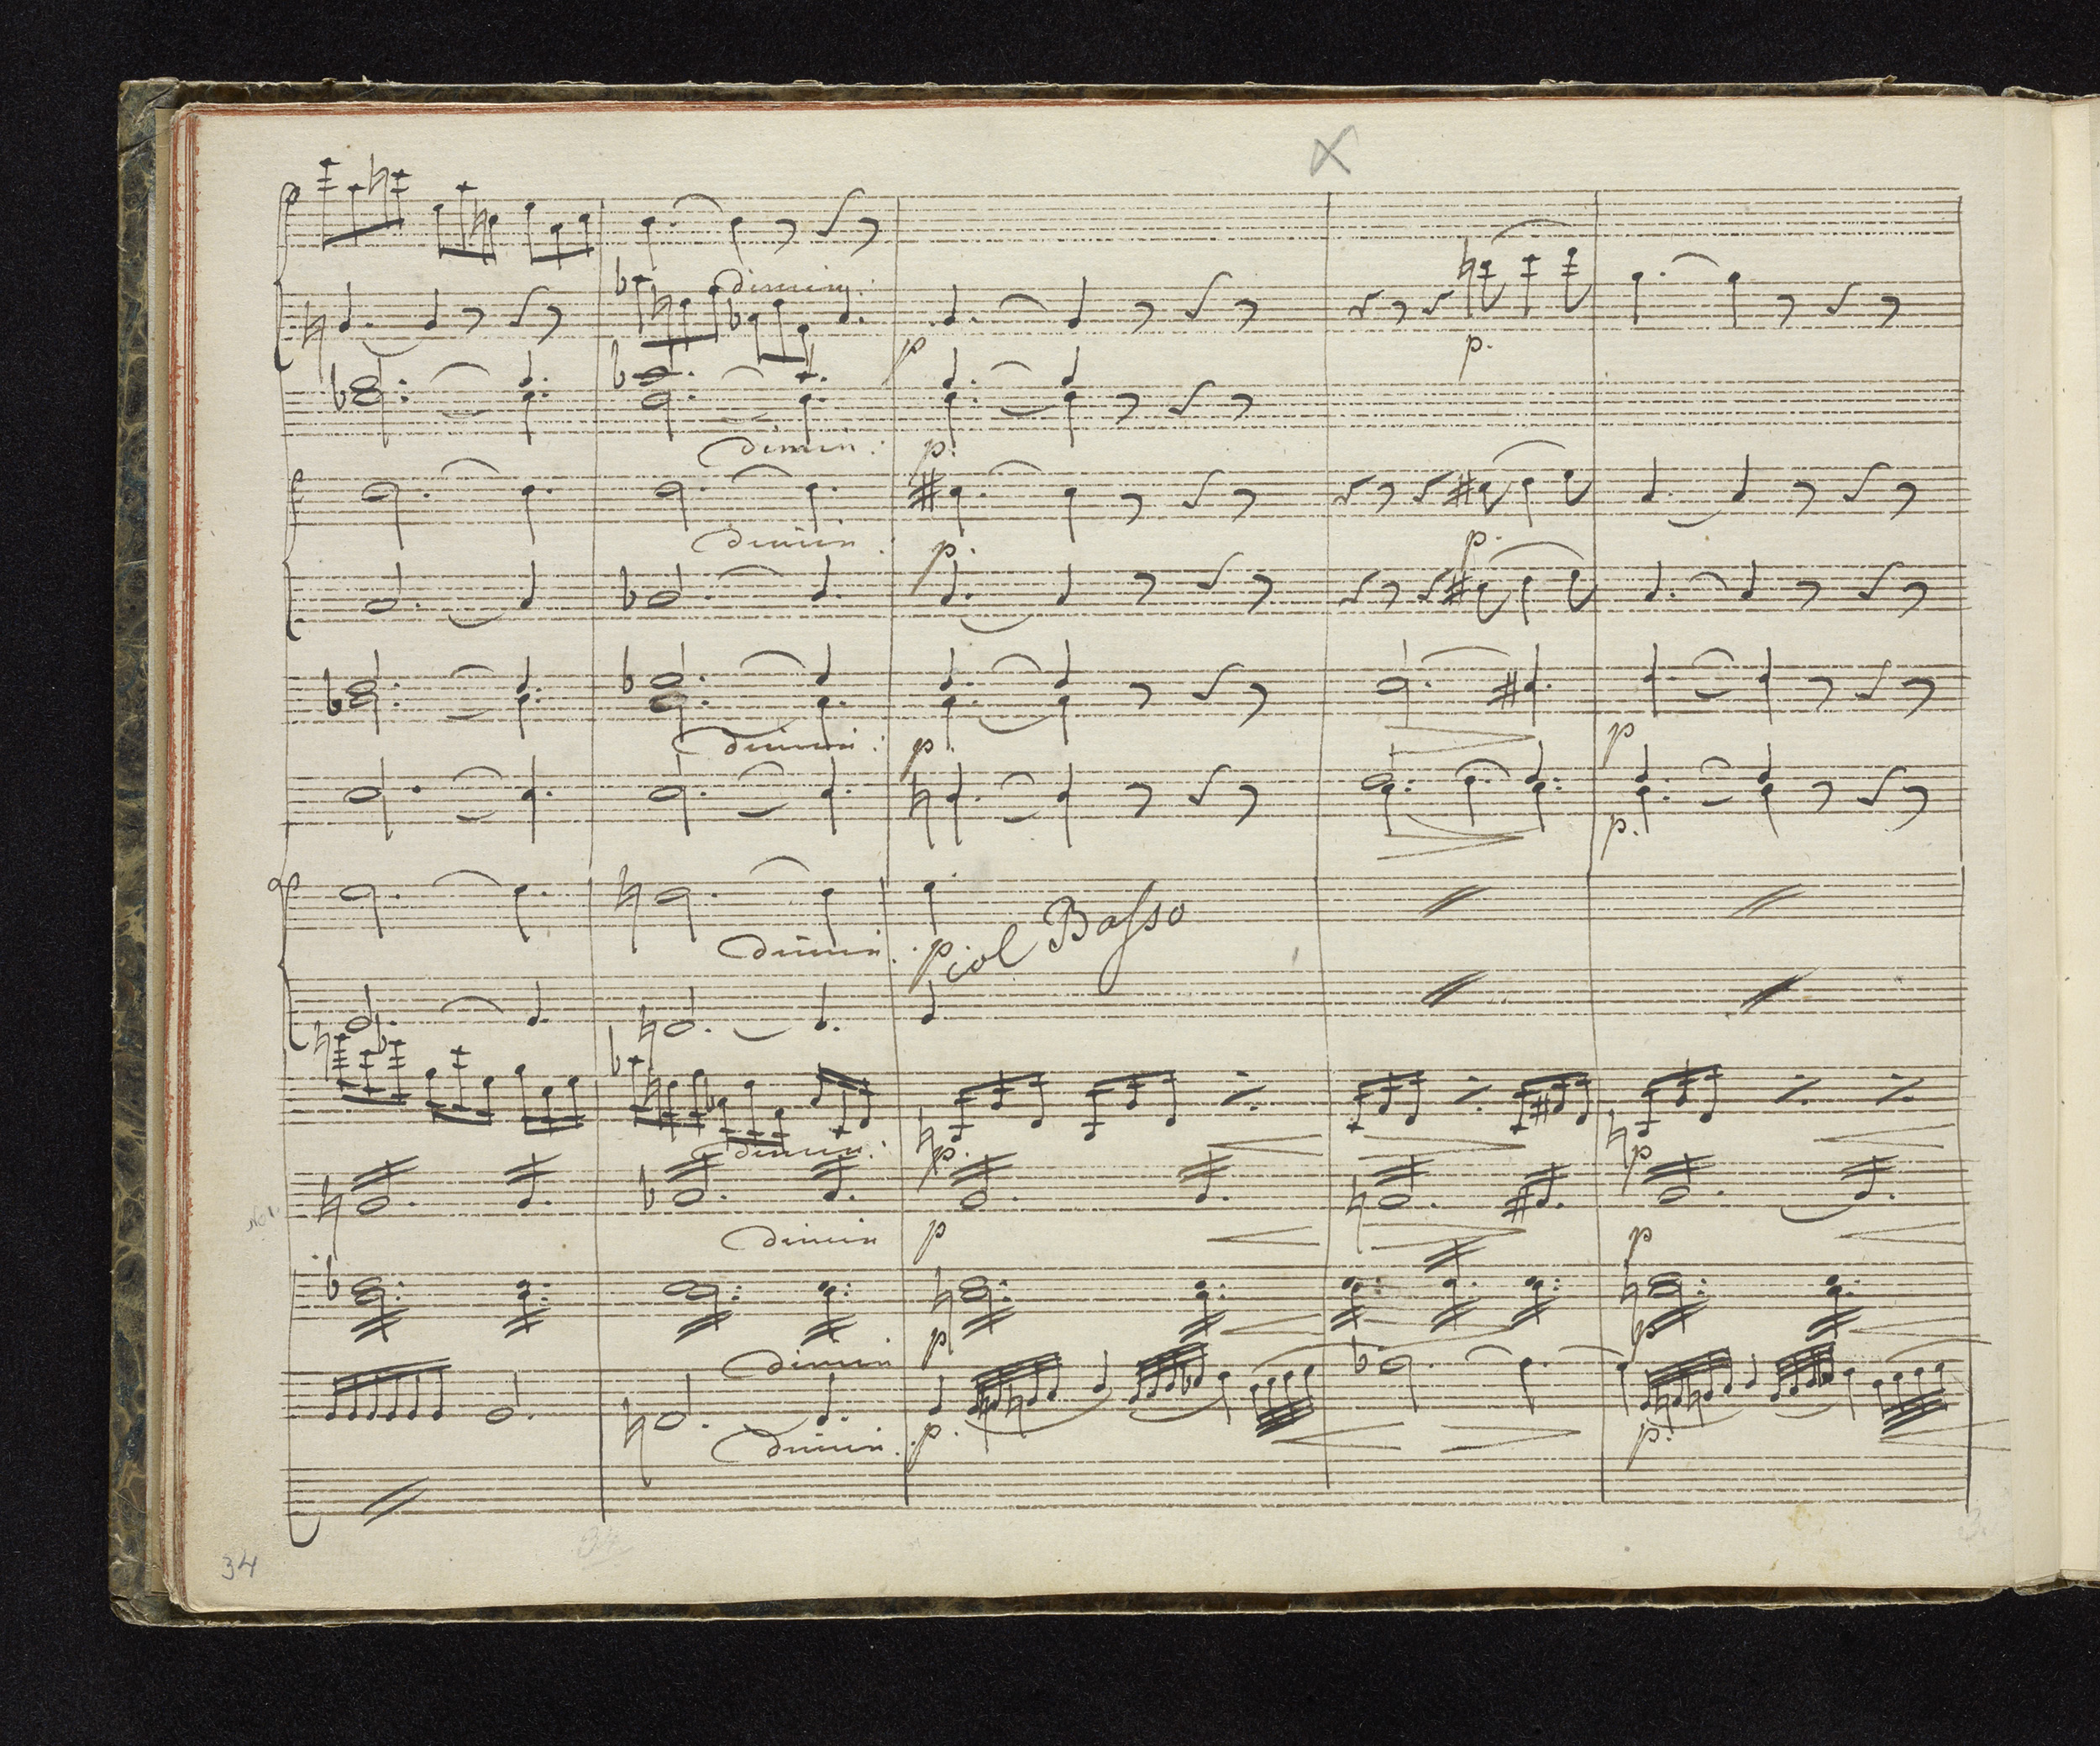 dimin:
p
p.
dimin:
p.
dimin.
p.
p.
dimin:
p.
p
p.
dimin.
p.
col Basso
dimin:
p.
p
dimin
p
p
dimin
p
p
dimin.
p.
p.
34